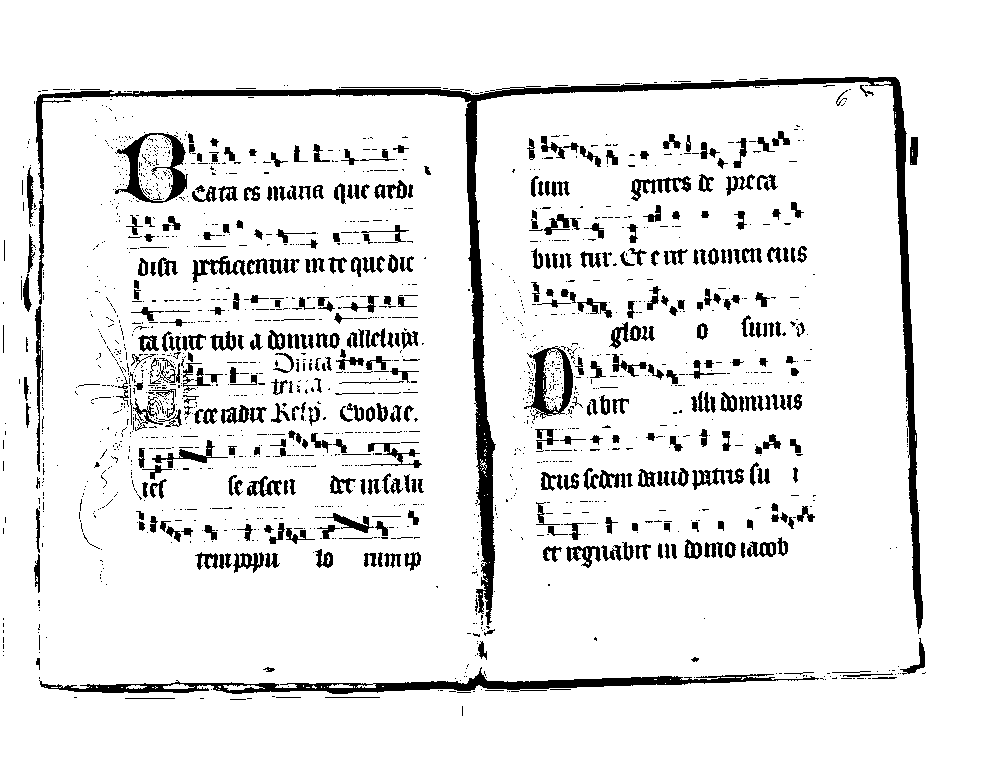 Beata es maria que credi
disti perficientur in te que dic
ta sunt tibi a domino alleluya.
Ecce radix Resp. Evovae.
ies se ascen det in salu
tem popu lo rum ip
6
sum gentes de preca
bun tur. Et e rit nomen eius
glori o sum. v.
Dabit illi dominus
deus sedem dauid patris su i
et regnabit in domo iacob